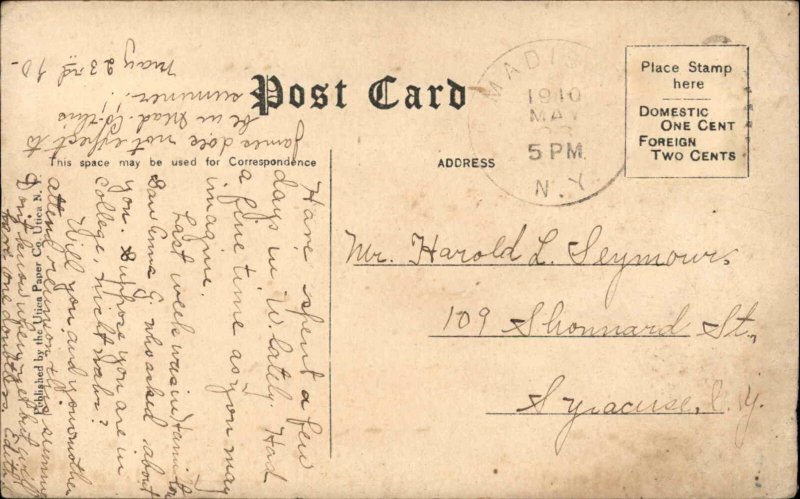 Post Card
This space may be used for Correspondence
ADDRESS
MADI
1910
MAY
5 PM
N.Y.
Place Stamp
here
DOMESTIC
ONE CENT
FOREIGN
TWO CENTS
Mr. Harold L. Seymour,
109 Shonnard St.,
Syracuse, N.Y.
Have spent a few
days in W. lately. Had
a fine time as you may
imagine.
Last week was in Hamilton
Saw Anna G. who asked about
you. Suppose you are in
college,
Will you and your mother
attend reunion this summer
Don't know when yet but
have one doubtless. Edith
James does not expect to
be in Mad. Co. this
summer.!!
May 23rd 10-
Published by the Utica Paper Co. Utica N.Y.